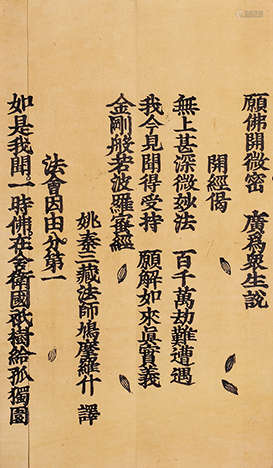 願佛開微密　廣爲衆生說
開經偈
無上甚深微妙法　百千萬劫難遭遇
我今見聞得受持　願解如來眞實義
金剛般若波羅蜜經
姚秦三藏法師鳩摩羅什　譯
法會因由分第一
如是我聞一時佛在舍衛國祇樹給孤獨園